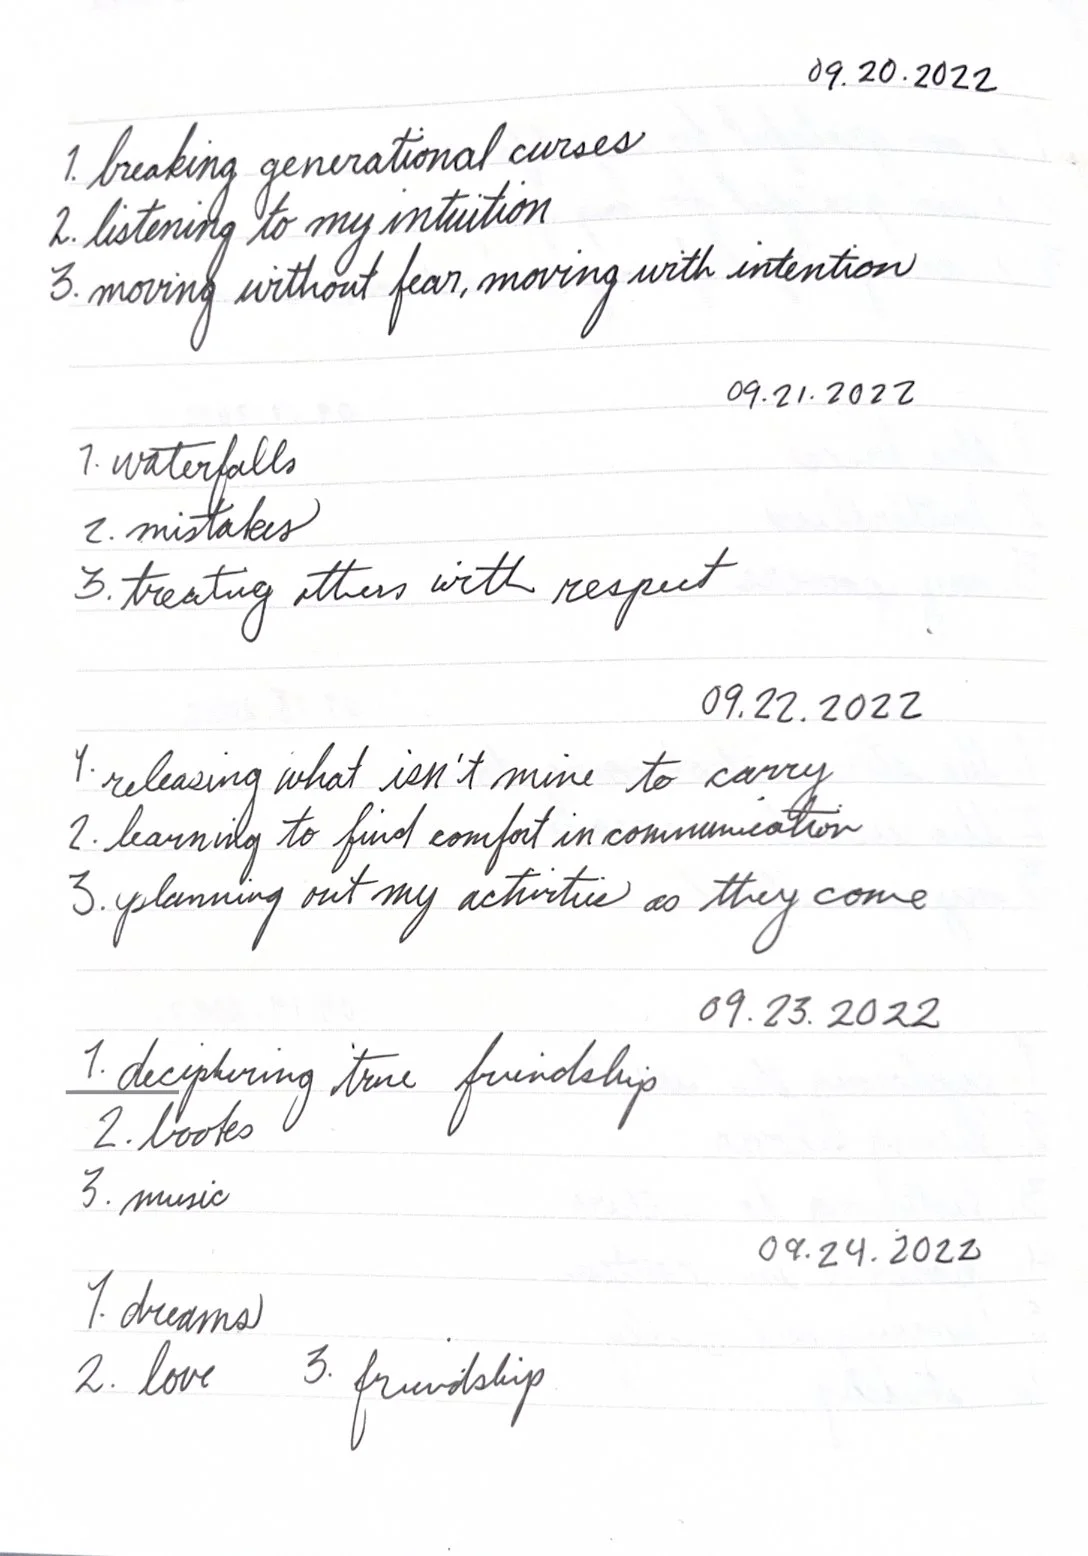 09.20.2022
1. breaking generational curses
2. listening to my intuition
3. moving without fear, moving with intention
09.21.2022
1. waterfalls
2. mistakes
3. treating others with respect
09.22.2022
1. releasing what isn't mine to carry
2. learning to find comfort in communication
3. planning out my activities as they come
09.23.2022
1. deciphering true friendship
2. books
3. music
09.24.2022
1. dreams
2. love 3. friendship